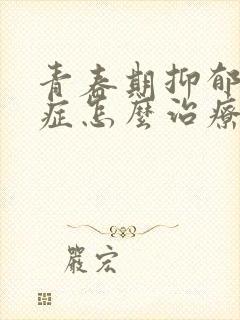 青春期抑郁
症怎麼治療
嚴宏